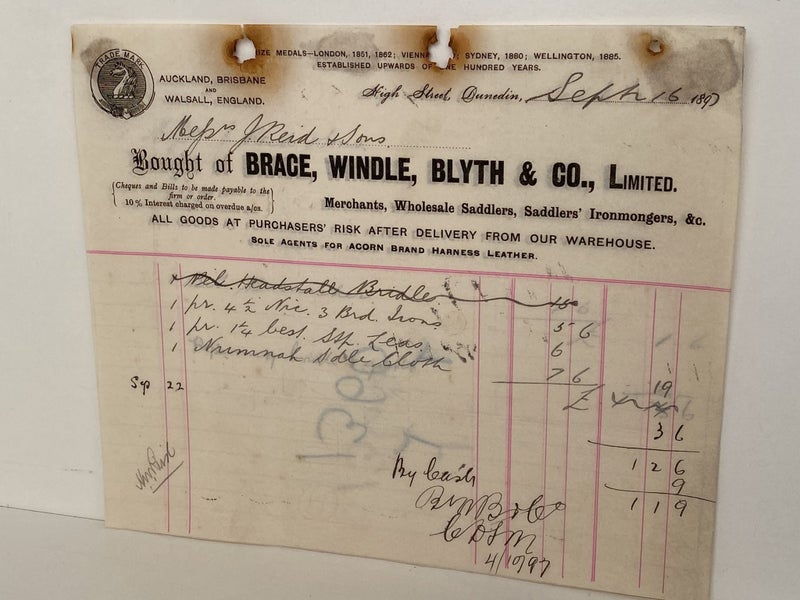 TRADE MARK
IZE MEDALS—LONDON, 1851, 1862; VIENNA; SYDNEY, 1880; WELLINGTON, 1885.
ESTABLISHED UPWARDS OF ONE HUNDRED YEARS.
AUCKLAND, BRISBANE
AND
WALSALL, ENGLAND.
High Street, Dunedin, Sept 16 1897
Messrs J Reid & Sons
Bought of BRACE, WINDLE, BLYTH & CO., LIMITED.
(Cheques and Bills to be made payable to the
firm or order.
10% Interest charged on overdue a/cs.
Merchants, Wholesale Saddlers, Saddlers' Ironmongers, &c.
ALL GOODS AT PURCHASERS' RISK AFTER DELIVERY FROM OUR WAREHOUSE.
SOLE AGENTS FOR ACORN BRAND HARNESS LEATHER.
Headstall Bridle
1 pr. 4½ Nic. 3 Brd Irons 5 6
1 pr. 1¼ best Stp. Leas 6
1 Numnah Sdle Cloth 7 6
19
Sep 22
3 6
1 2 6
9
1 1 9
By Cash
4/10/97